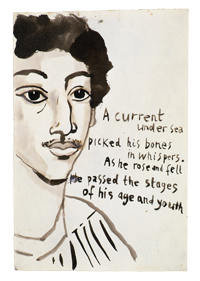 A current
under sea
picked his bones
in whispers.
As he rose and fell
He passed the stages
of his age and youth